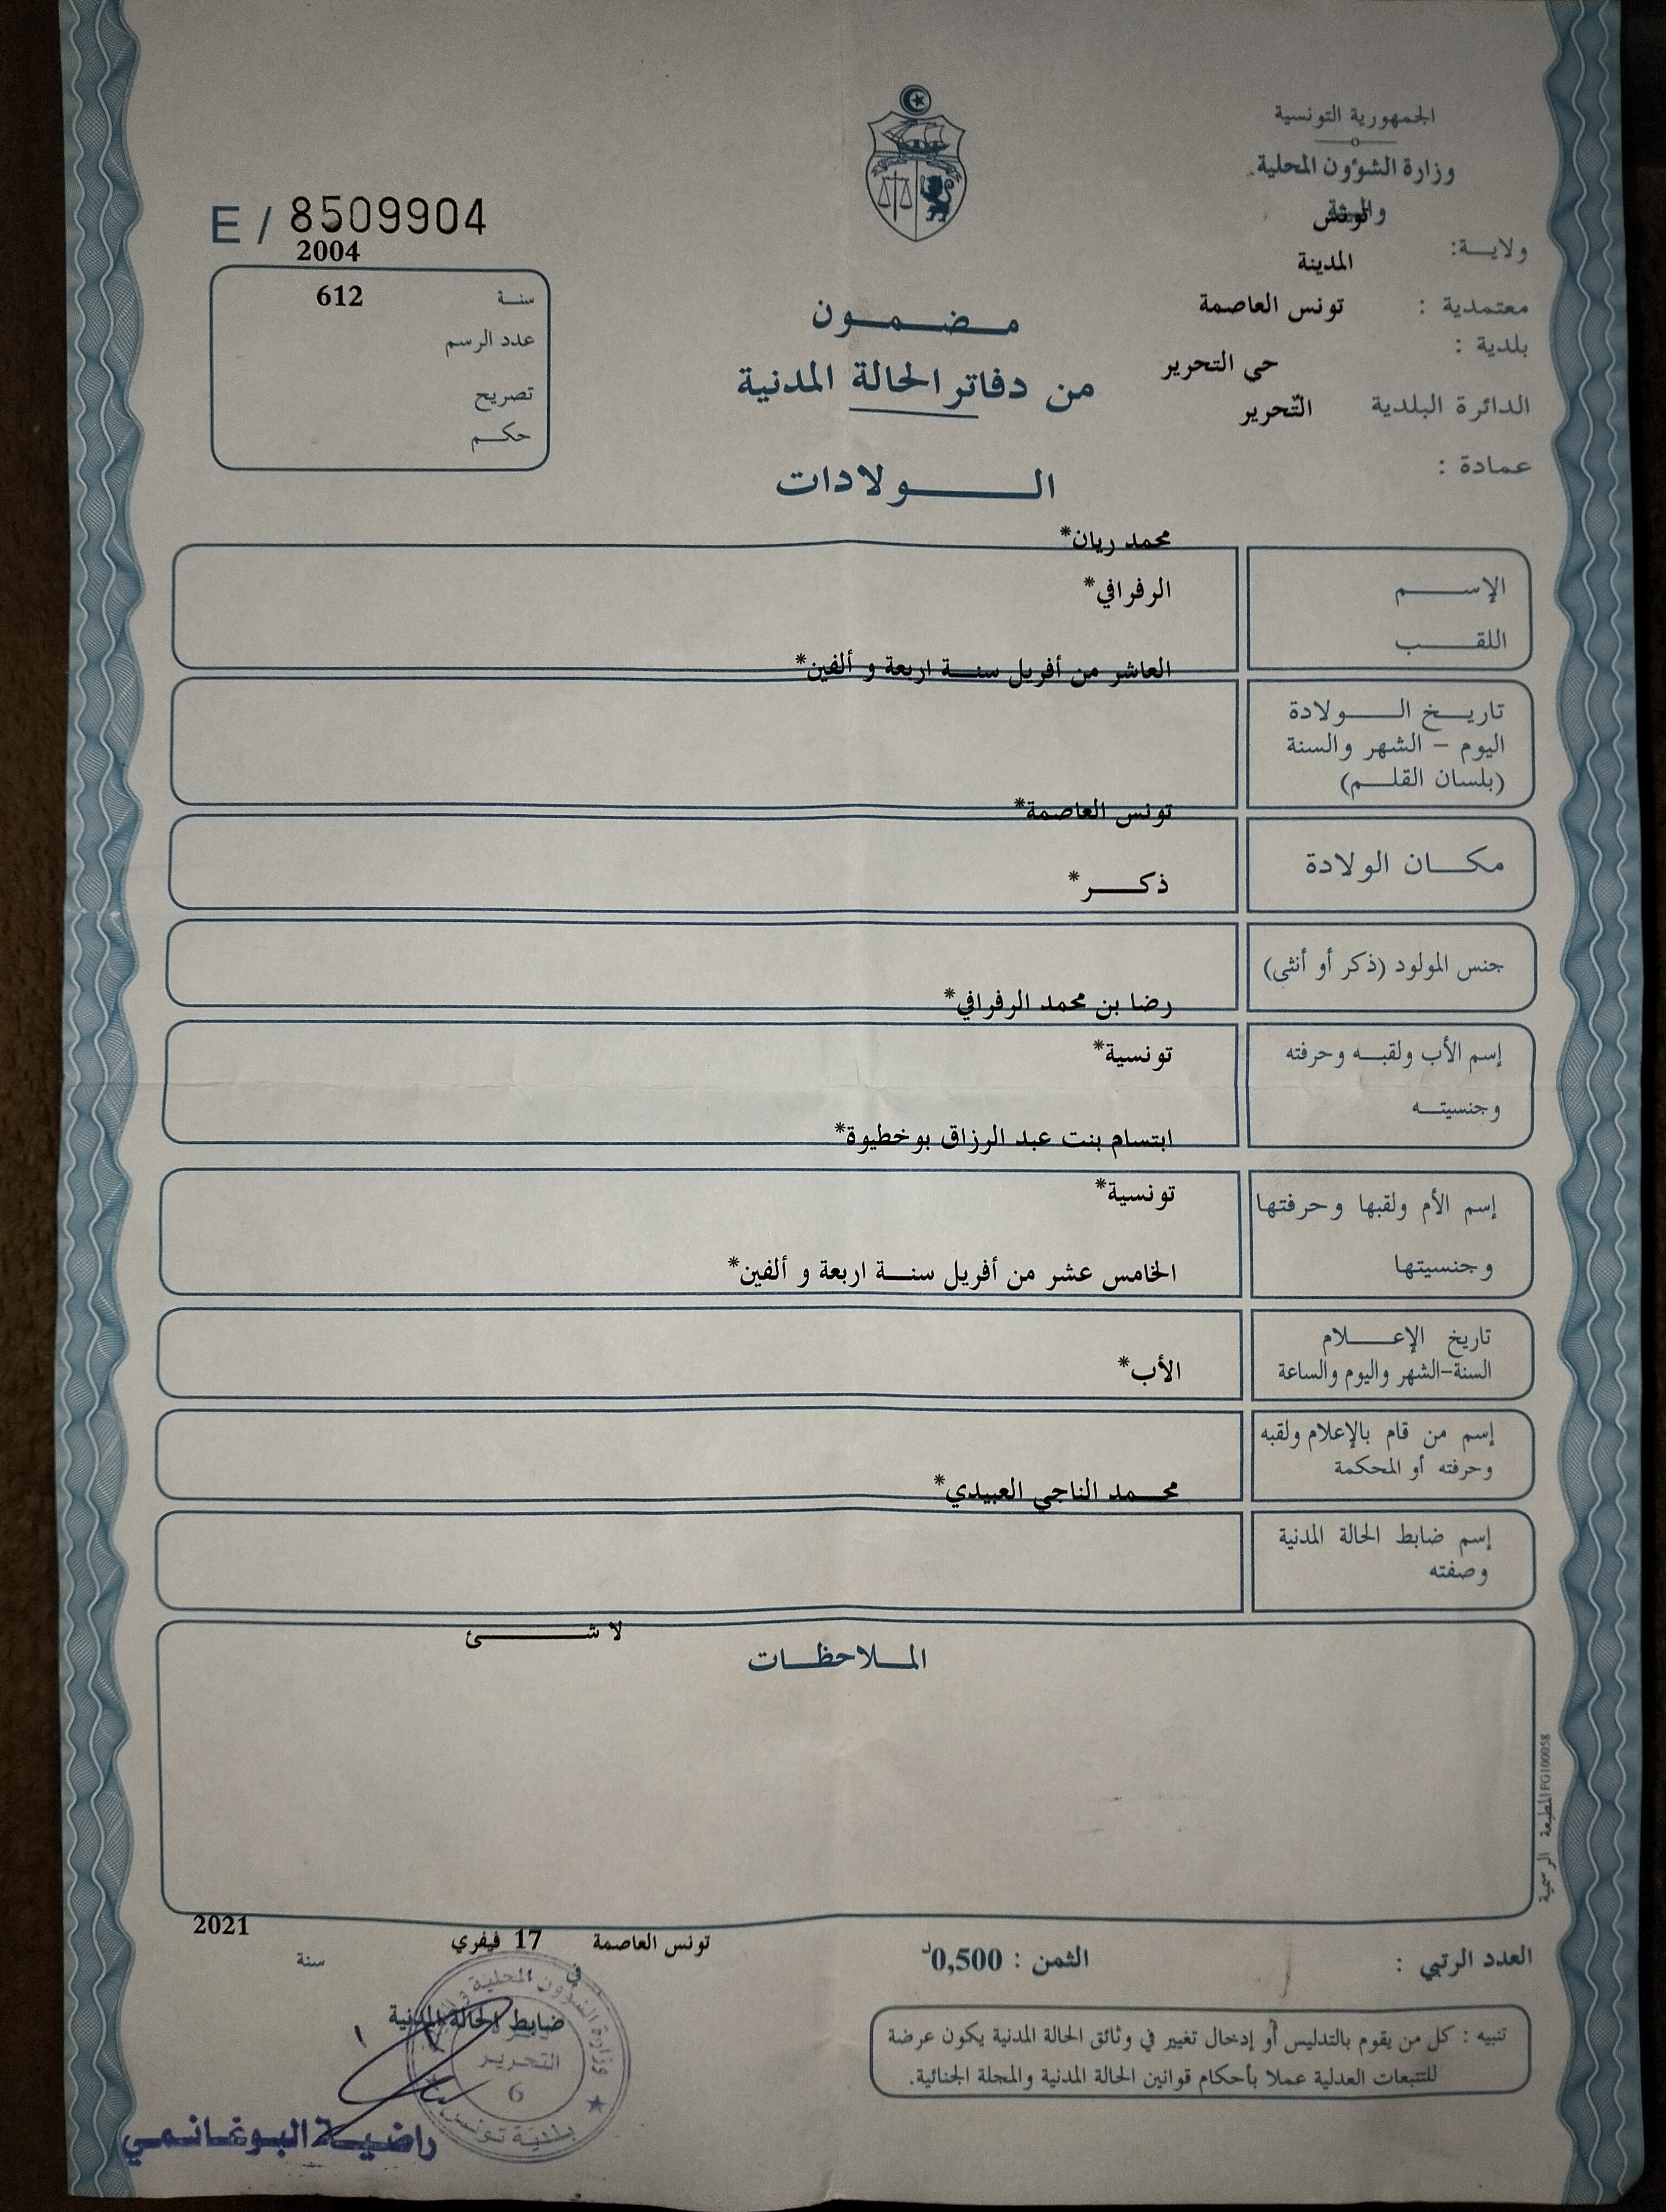 الجمهورية التونسية
وزارة الشؤون المحلية
والبيئة
تونس
ولايـة:
المدينة
معتمدية :
تونس العاصمة
بلدية :
حي التحرير
الدائرة البلدية
التّحرير
عمادة :
E / 8509904
2004
سنـة
612
عدد الرسم
تصريح
حكـم
مـضـمـون
من دفاتر الحالة المدنية
الـولادات
محمد ريان*
الإسـم
الرفرافي*
اللقـب
العاشر من أفريل سنـة اربعة و ألفين*
تاريـخ الـولادة
اليوم – الشهر والسنة
(بلسان القلـم)
تونس العاصمة*
مكـان الولادة
ذكـر*
جنس المولود (ذكر أو أنثى)
رضا بن محمد الرفرافي*
إسم الأب ولقبـه وحرفته
تونسية*
وجنسيتـه
ابتسام بنت عبد الرزاق بوخطيوة*
إسم الأم ولقبها وحرفتها
تونسية*
وجنسيتها
الخامس عشر من أفريل سنـة اربعة و ألفين*
تاريخ الإعـلام
السنة-الشهر واليوم والساعة
الأب*
إسم من قام بالإعلام ولقبه
وحرفته أو المحكمة
محـمد الناجي العبيدي*
إسم ضابط الحالة المدنية
وصفته
لا شـئ
المـلاحظـات
المطبعة الرسمية FG100058
2021
سنة
تونس العاصمة 17 فيفري
في
العدد الرتبي :
الثمن : 0,500د
ضابط الحالة المدنية
وزارة الشؤون المحلية
التحرير
6
بلدية تونس
راضيـة البـوغـانـمـي
تنبيه : كل من يقوم بالتدليس أو إدخال تغيير في وثائق الحالة المدنية يكون عرضة
للتتبعات العدلية عملا بأحكام قوانين الحالة المدنية والمجلة الجنائية.